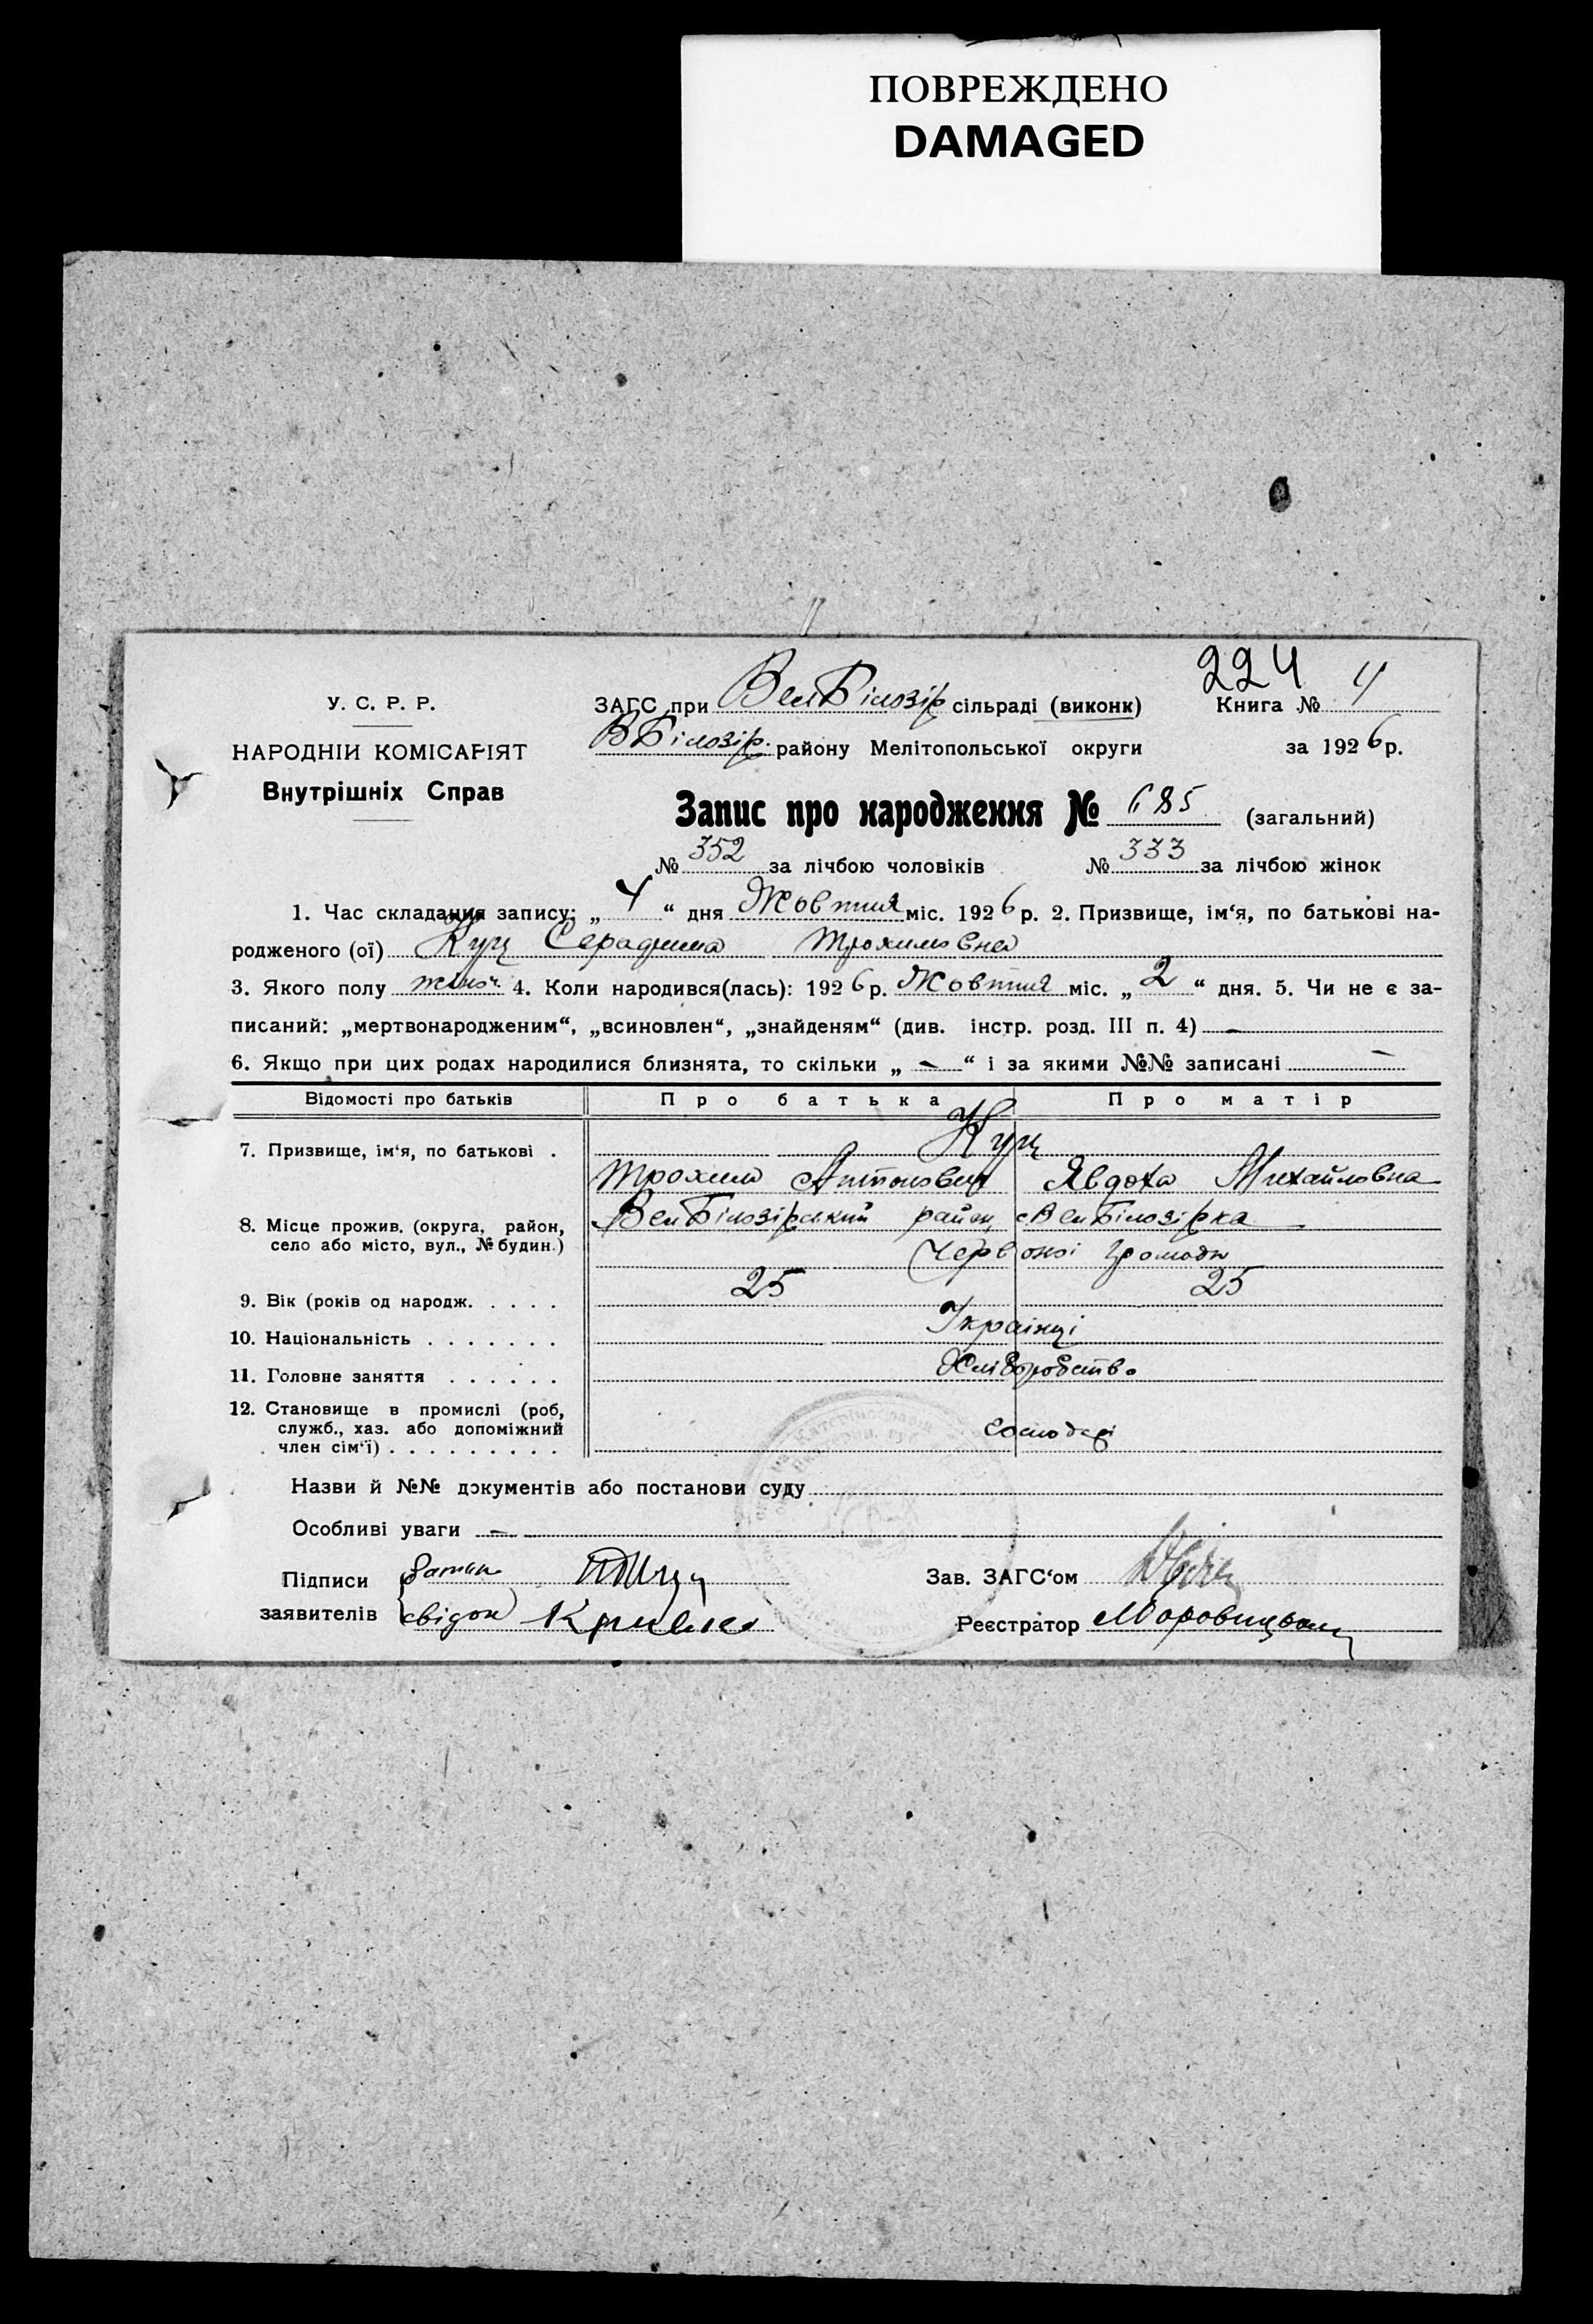 ПОВРЕЖДЕНО
DAMAGED
224
У. С. Р. Р.
НАРОДНІЙ КОМІСАРІЯТ
Внутрішніх Справ
ЗАГС при ВелБілозір сільраді (виконк) Книга № 4
ВБілозір. району Мелітопольської округи за 1926 р.
Запис про народження № 685 (загальний)
№ 352 за лічбою чоловіків № 333 за лічбою жінок
1. Час складання запису: „ 4 “ дня Жовтня міс. 1926 р. 2. Призвище, ім‘я, по батькові на-
родженого (ої) Куц Серадима Трохимовна
3. Якого полу жіноч. 4. Коли народився(лась): 1926 р. Жовтня міс. „ 2 “ дня. 5. Чи не є за-
писаний: „мертвонародженим“, „всиновлен“, „знайденям“ (див. інстр. розд. III п. 4) —
6. Якщо при цих родах народилися близнята, то скільки „ — “ і за якими №№ записані —
Відомості про батьків Про батька Про матір
7. Призвище, ім‘я, по батькові . Куц
Трохим Антонович Явдоха Михайловна
8. Місце прожив. (округа, район, ВелБілозірський район с ВелБілозірка
село або місто, вул., № будин.) Червоної громади
9. Вік (років од народж. . . . . 25 25
10. Національність . . . . . . . Українці
11. Головне заняття . . . . . . Хліборобство
12. Становище в промислі (роб,
служб., хаз. або допоміжний господарі
член сім‘ї) . . . . . . . . .
Назви й №№ документів або постанови суду
Особливі уваги —
Підписи Зав. ЗАГС‘ом
заявителів свідок Реєстратор